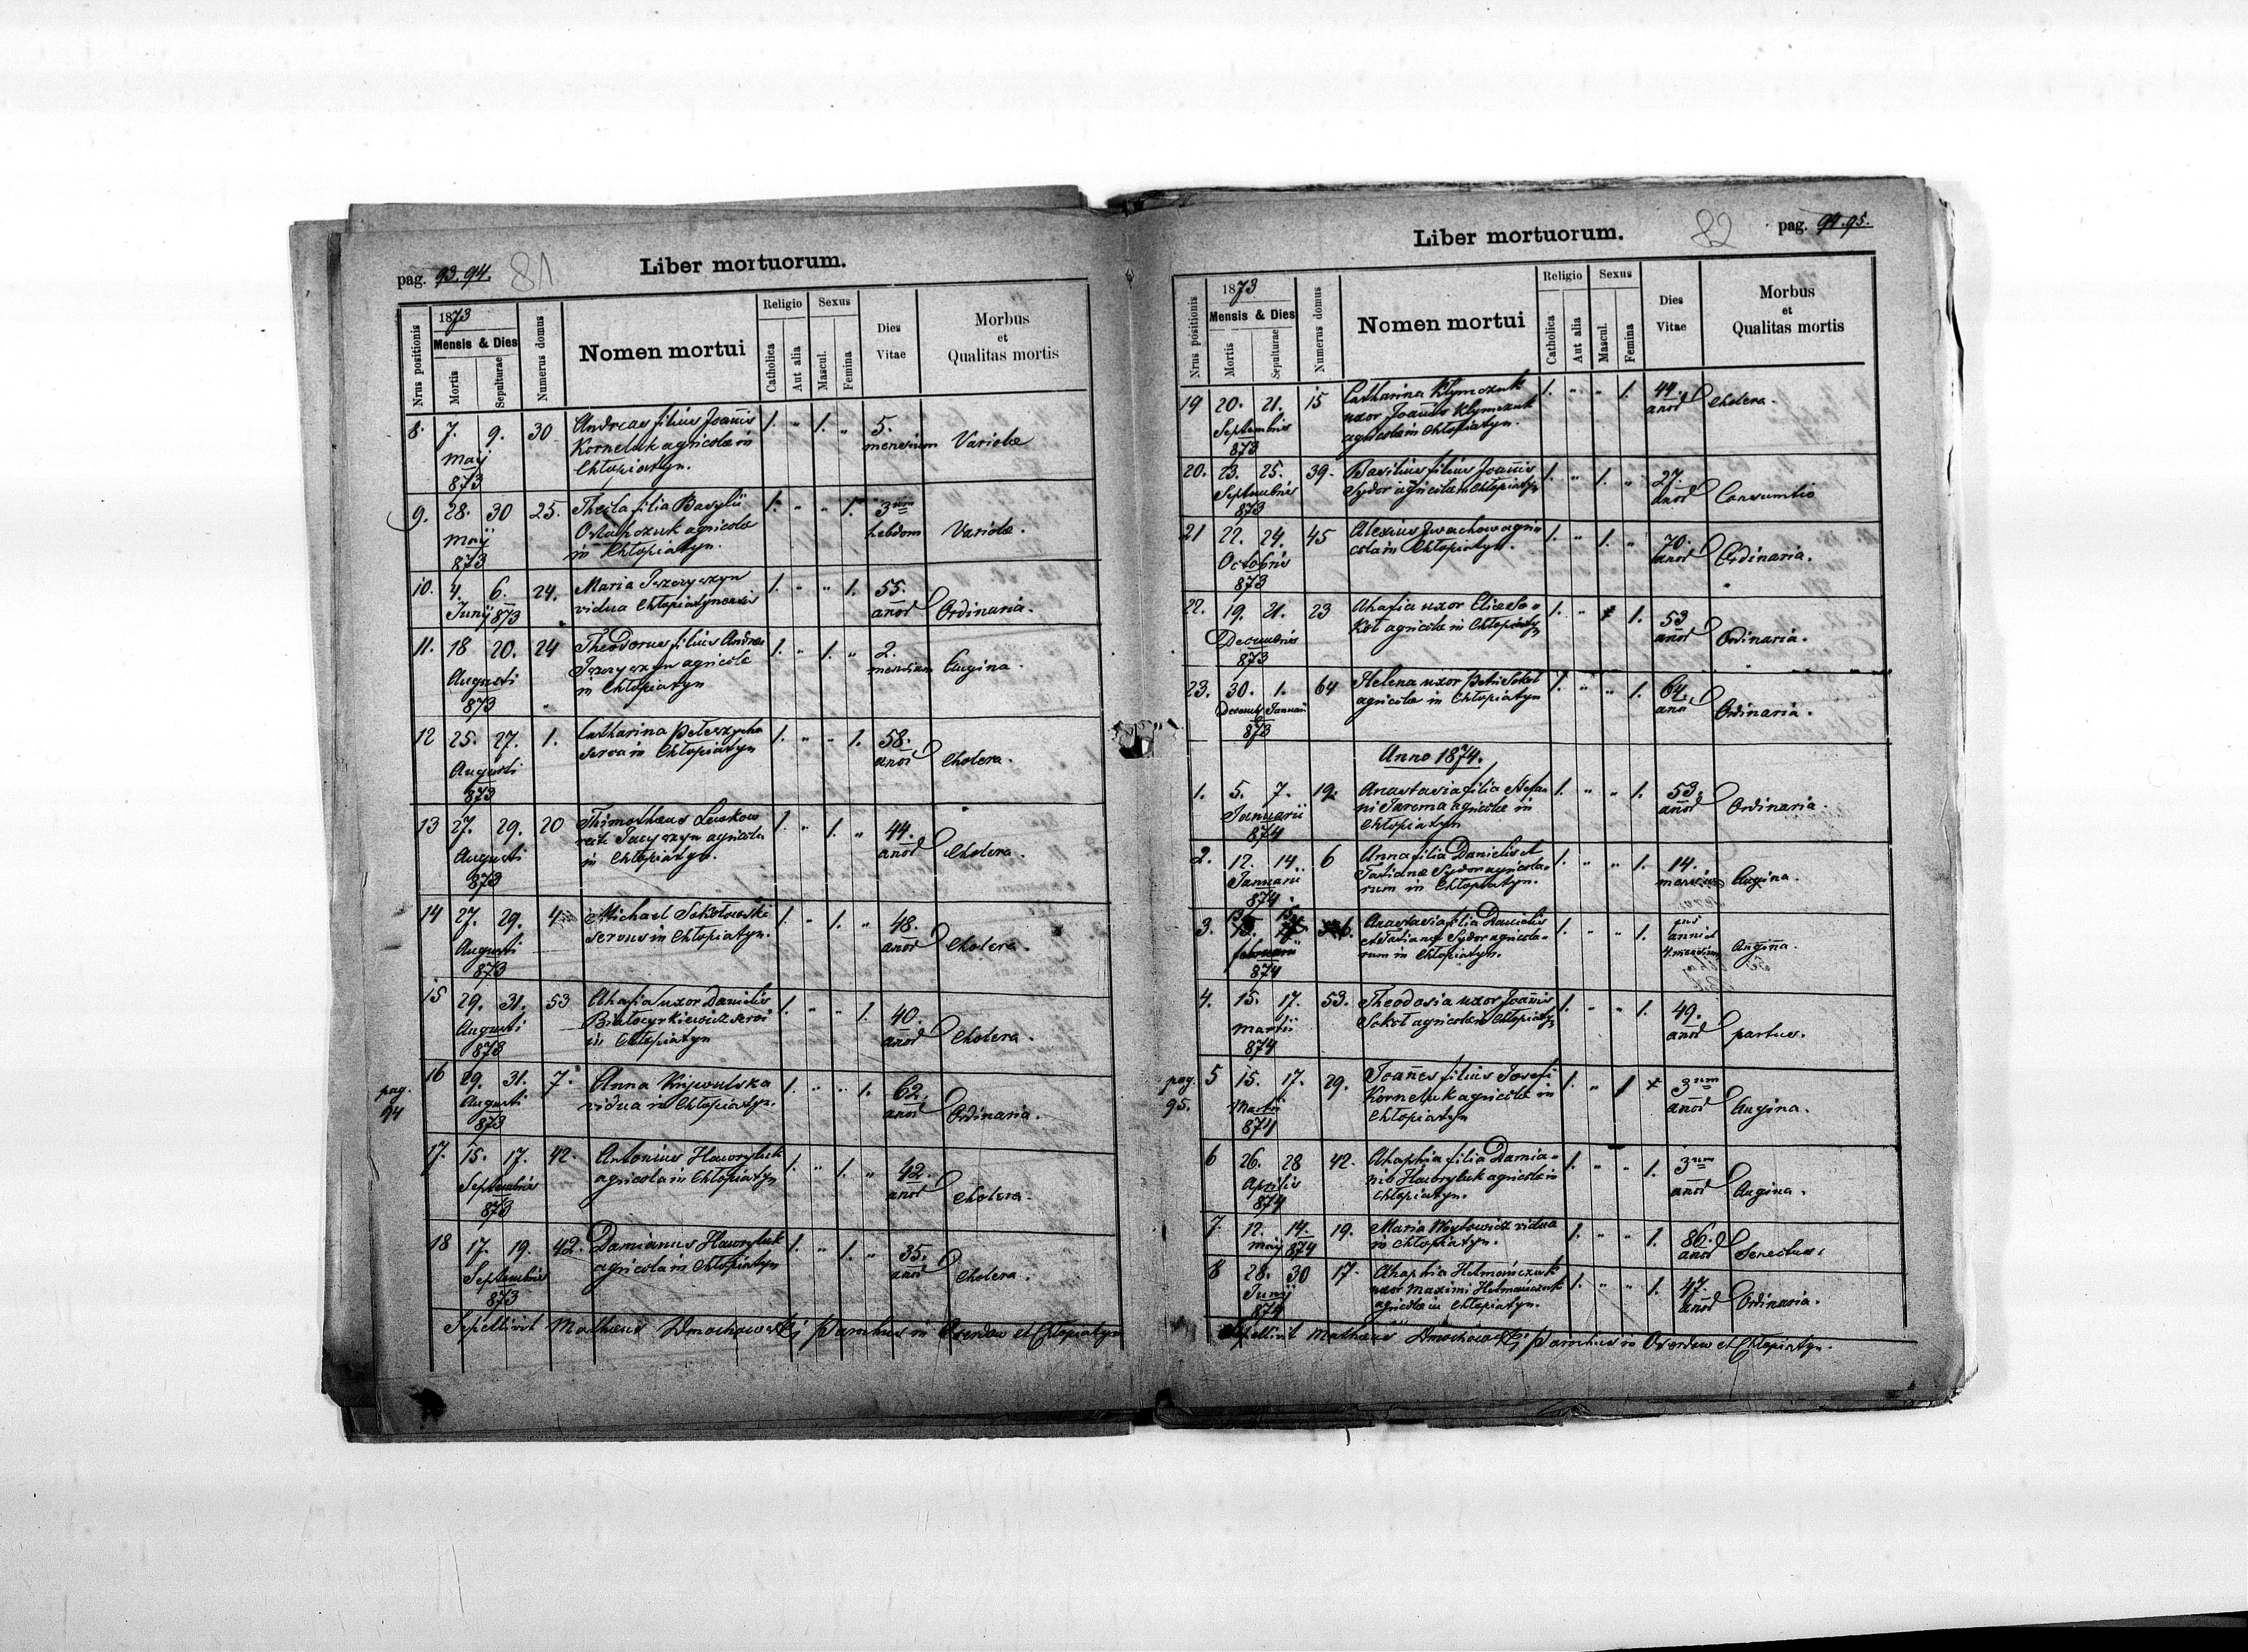 pag. 93.94. 81 Liber mortuorum.
Nrus positionis
1873
Mensis & Dies
Mortis
Sepulturae
Numerus domus
Nomen mortui
Religio
Catholica
Aut alia
Sexus
Mascul.
Femina
Dies
Vitae
Morbus
et
Qualitas mortis
8. 7. 9. 30 Andreas filius Joannis 1. " 1. " 5.
Maij Korneluk agricolae in mensium Variolae
873 Chłopiatyn.
9. 28. 30 25. Thecla filia Basylii 1. " " 1. 3um
Maij Ostapczuk agricolae hebdom Variolae.
873 in Chłopiatyn.
10. 4. 6. 24. Maria 1. " " 1. 55.
Junij 873 vidua Chłopiatynensis anor Ordinaria.
11. 18 20. 24 Theodorus filius Andreae 1. " 1. " 2.
Augusti agricolae mensium Angina.
873 in Chłopiatyn
12 25. 27. 1. Catharina 1. " " 1. 58.
Augusti serva in Chłopiatyn anor Cholera.
873
13 27. 29. 20 Thimotheus 1. " 1. " 44.
Augusti agricola anor Cholera.
873 in Chłopiatyn.
14 27. 29. 4 Michael Sokołowski 1. " 1. " 48.
Augusti servus in Chłopiatyn. anor Cholera.
873
15 29. 31. 53 Ahafia uxor Danielis 1. " " 1. 40.
Augusti Białocyrkiewicz servi anor Cholera.
873 in Chłopiatyn
pag. 94
16 29. 31. 7. Anna 1. " " 1. 62.
Augusti vidua in Chłopiatyn. anor Ordinaria.
873
17. 15. 17. 42. Antonius Hawryluk 1. " 1. " 42.
Septembris agricola in Chłopiatyn anor Cholera.
873
18 17. 19. 42. Damianus Hawryluk 1. " 1. " 35.
Septembris agricola in Chłopiatyn anor Cholera.
873
Sepellivit Mathaeus Dmochowski Parochus in Oserdow et Chłopiatyn
Liber mortuorum. 82 pag. 94.95.
Nrus positionis
1873
Mensis & Dies
Mortis
Sepulturae
Numerus domus
Nomen mortui
Religio
Catholica
Aut alia
Sexus
Mascul.
Femina
Dies
Vitae
Morbus
et
Qualitas mortis
19 20. 21. 15 Catharina Klymczuk 1. " " 1. 44.
Septembris uxor Joannis Klymczuk anor Cholera.
873 agricolae in Chłopiatyn.
20. 23. 25. 39. Basilius filius Joannis 1. " 1. " 27.
Septembris Sydor agricolae in Chłopiatyn anor Consumtio
873
21 22. 24. 45 Alexius Iwachow agri- 1. " 1. " 70.
Octobris cola in Chłopiatyn. anor Ordinaria.
873
22. 19. 21. 23 Ahafia uxor Eliae So- 1. " 1. 53
Decembris koł agricolae in Chłopiatyn anor Ordinaria.
873
23. 30. 1. 64 Helena uxor Petri Sokoł 1. " " 1. 64.
Decemb Januarii agricolae in Chłopiatyn anor Ordinaria.
873
Anno 1874.
1. 5. 7. 19. Anastasia filia Stefa- 1. " " 1. 53.
Januarii ni Jarema agricolae in anor Ordinaria.
874 Chłopiatyn
2. 12. 14. 6 Anna filia Danielis et 1. " " 1. 14.
Januarii Tatianae Sydor agricola- Angina.
874. rum in Chłopiatyn.
3. 13. 15. 6. Anastasia filia Danielis 1. " " 1.
februarii et Tatianae Sydor agricola- anni et
874 rum in Chłopiatyn. 4. mensium Angina.
4. 15. 17. 53. Theodosia uxor Joannis 1. " " 1. 49.
Martii Sokoł agricolae in Chłopiatyn anor partus.
874
pag. 95.
5 15. 17. 29. Joannes filius Josefi 1. " 1 3um
Martii Korneluk agricolae in anor Angina.
874 Chłopiatyn
6 26. 28 42. Ahaphia filia Damia- 1. " " 1. 3um
Aprilis ni Hawryluk agricolae in anor Angina.
874 Chłopiatyn.
7. 12. 14. 19. Maria Woytowicz vidua 1. " " 1. 86.
Maij 874 in Chłopiatyn. anor Senectus.
8 28. 30 17. Ahaphia Helmańczuk 1. " " 1. 47.
Junij uxor Maximi Helmańczuk anor Ordinaria.
874 agricolae in Chłopiatyn.
Sepellivit Mathaeus Dmochowski Parochus in Oserdow et Chłopiatyn.